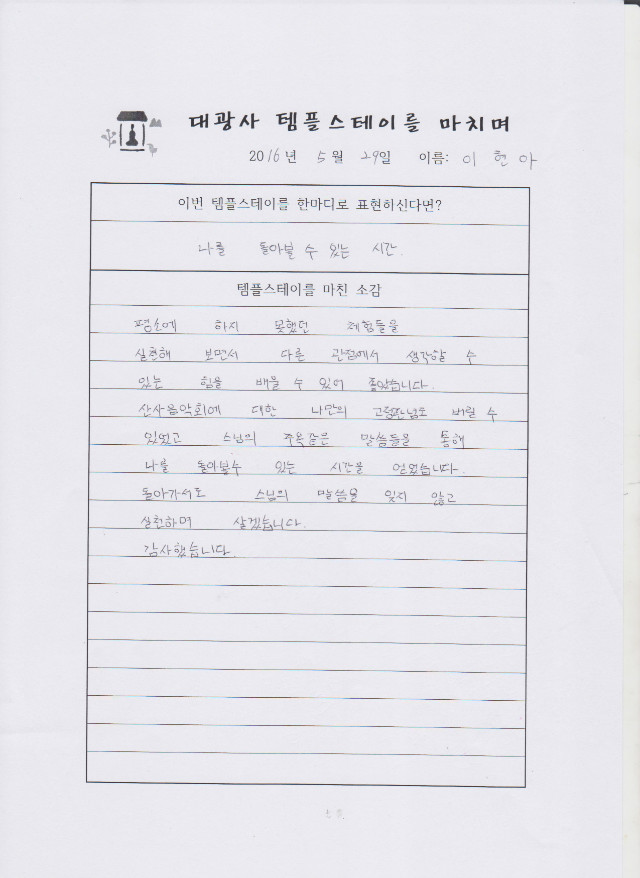 대광사 템플스테이를 마치며
2016년 5월 29일 이름: 이 헌 아
이번 템플스테이를 한마디로 표현하신다면?
나를 돌아볼 수 있는 시간.
템플스테이를 마친 소감
평소에 하지 못했던 체험들을
실천해 보면서 다른 관점에서 생각할 수
있는 힘을 배울 수 있어 좋았습니다.
산사음악회에 대한 나만의 고정관념도 버릴 수
있었고 스님의 주옥같은 말씀들을 통해
나를 돌아볼수 있는 시간을 얻었습니다.
돌아가서도 스님의 말씀을 잊지 않고
실천하며 살겠습니다.
감사했습니다.